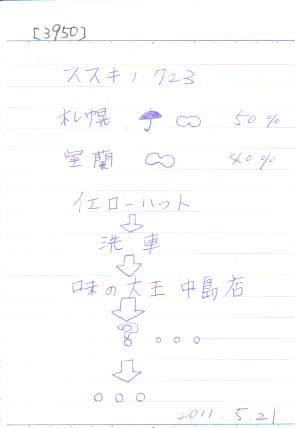 [3950]
ススキノ 723
札幌 ☂ ☁ 50%
室蘭 ☁ 40%
イエローハット
⇩
洗車
⇩
味の大王 中島店
⇩
? 。。。
⇩
○○○
2011.5.21